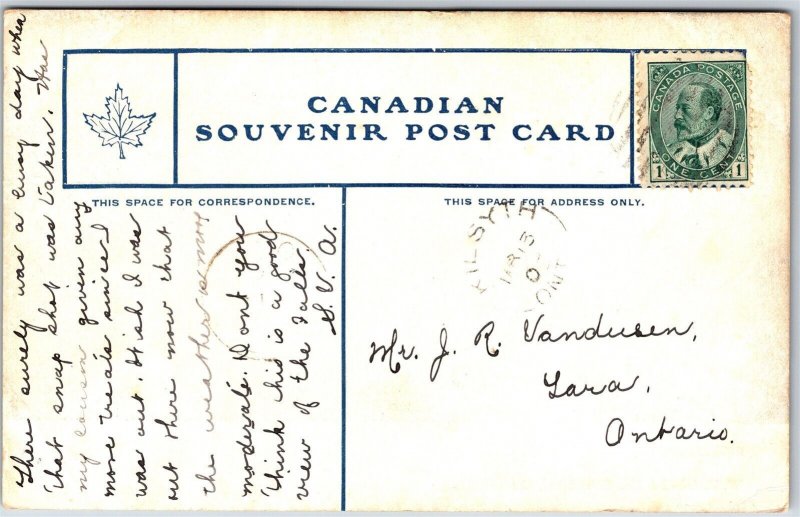 CANADIAN
SOUVENIR POST CARD
CANADA POSTAGE
1 ONE CENT 1
THIS SPACE FOR CORRESPONDENCE.
THIS SPACE FOR ADDRESS ONLY.
KILSYTH
ONT
There surely was a away day when
that snap shot was taken. Has
my cousin given any
more recitals since I
was out. Wish I was
out there now that
the weather is more
moderate. Dont you
think this is a good
view of the Falls.
S. V. A.
Mr. J. R. Vandusen,
Tara,
Ontario.